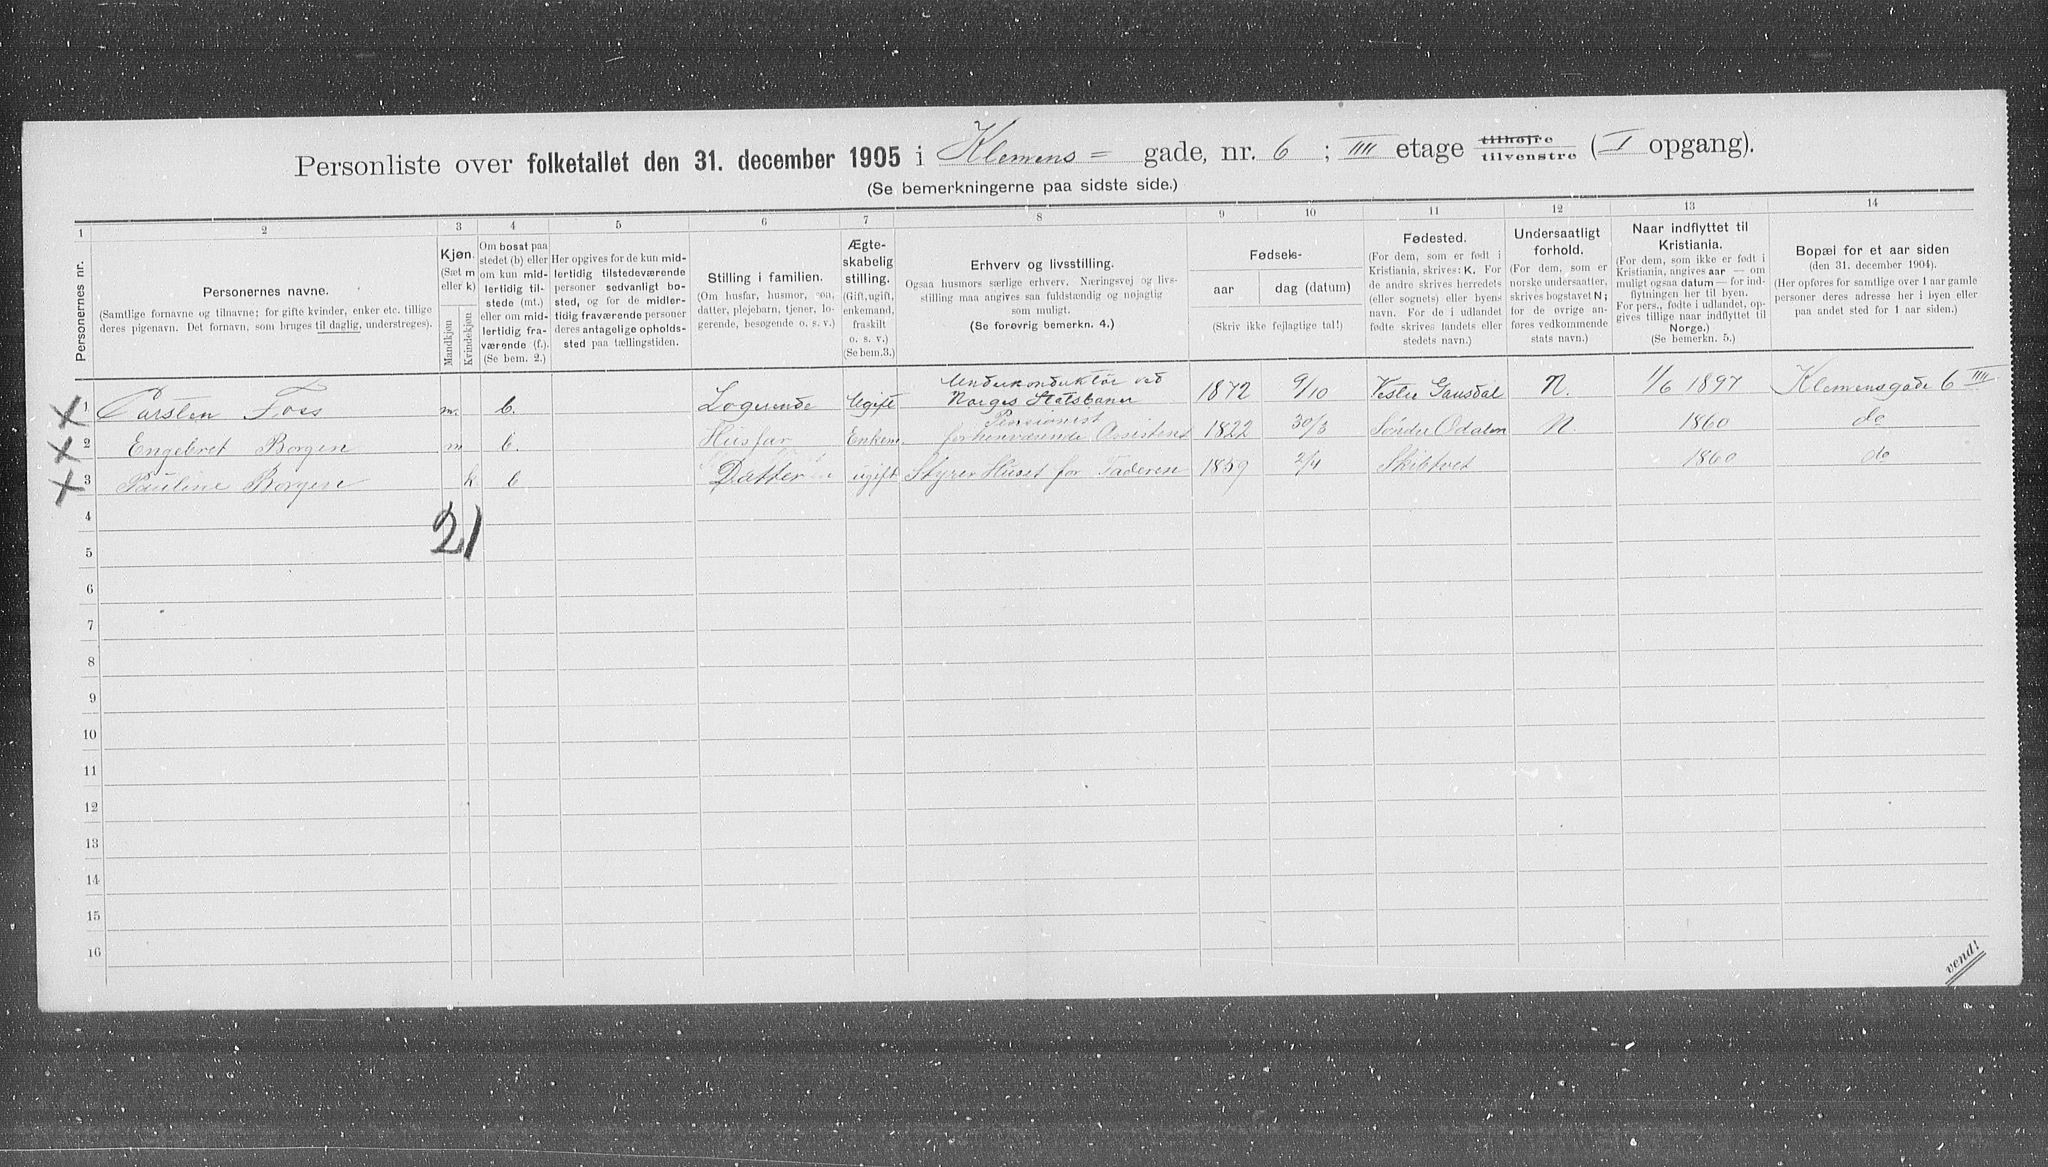 Personliste over folketallet den 31. december 1905 i Klemens= gade, nr. 6 ; IIII etage tilhøjre tilvenstre ( I opgang).
(Se bemerkningerne paa sidste side.)
1 2 3 4 5 6 7 8 9 10 11 12 13 14
Personernes nr.
Personernes navne.
(Samtlige fornavne og tilnavne; for gifte kvinder, enker etc. tillige
deres pigenavn. Det fornavn, som bruges til daglig, understreges).
Kjøn.
(Sæt m
eller k)
Mandkjøn
Kvindekjøn
Om bosat paa
stedet (b) eller
om kun mid-
lertidig til-
stede (mt.)
eller om mid-
lertidig fra-
værende (f.).
(Se bem. 2.)
Her opgives for de kun mid-
lertidig tilstedeværende
personer sedvanligt bo-
sted, og for de midler-
tidig fraværende personer
deres antagelige opholds-
sted paa tællingstiden.
Stilling i familien.
(Om husfar, husmor, søn,
datter, plejebarn, tjener, lo-
gerende, besøgende o. s. v.)
Ægte-
skabelig
stilling.
(Gift, ugift,
enkemand,
fraskilt
o. s. v.)
(Se bem. 3.)
Erhverv og livsstilling.
Ogsaa husmors særlige erhverv. Næringsvej og livs-
stilling maa angives saa fuldstændig og nøjagtig
som muligt.
(Se forøvrig bemerkn. 4.)
Fødsels-
aar dag (datum)
(Skriv ikke fejlagtige tal!)
Fødested.
(For dem, som er født i
Kristiania, skrives: K. For
de andre skrives herredets
(eller sognets) eller byens
navn. For de i udlandet
fødte skrives landets eller
stedets navn.)
Undersaatligt
forhold.
(For dem, som er
norske undersaatter,
skrives bogstavet N;
for de øvrige an-
føres vedkommende
stats navn.)
Naar indflyttet til
Kristiania.
(For dem, som ikke er født i
Kristiania, angives aar — om
muligt ogsaa datum — for ind-
flytningen her til byen.
For pers., fødte i udlandet, op-
gives tillige naar indflyttet til
Norge.)
(Se bemerkn. 5.)
Bopæl for et aar siden
(den 31. december 1904).
(Her opføres for samtlige over 1 aar gamle
personer deres adresse her i byen eller
paa andet sted for 1 aar siden.)
X 1 Carsten Foss m. b. Logerende Ugift Underkonduktør ved Norges Statsbaner 1872 9/10 Vestre Gausdal N. 1/6 1897 Klemensgade 6 IIII
X 2 Engebret Borgen m b. Husfar Enkem. Pensionist forhenværende Assistent 1822 30/3 Søndre Odalen N 1860 do
X 3 Pauline Borgen k b Datter ugift Styrer Huset for Faderen 1859 2/4 Skibtvet 1860 do
4
2 1
5
6
7
8
9
10
11
12
13
14
15
16
vend!